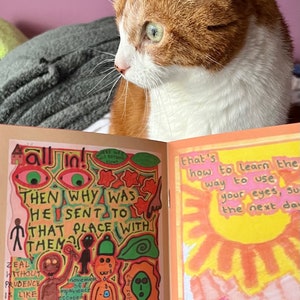 all in!
THEN WHY WAS
HE SENT TO
THAT PLACE WITH
THEM?
ZEAL
WITHOUT
PRUDENCE
IS LIKE
that's
how to learn the
way to use
your eyes, so
the next day